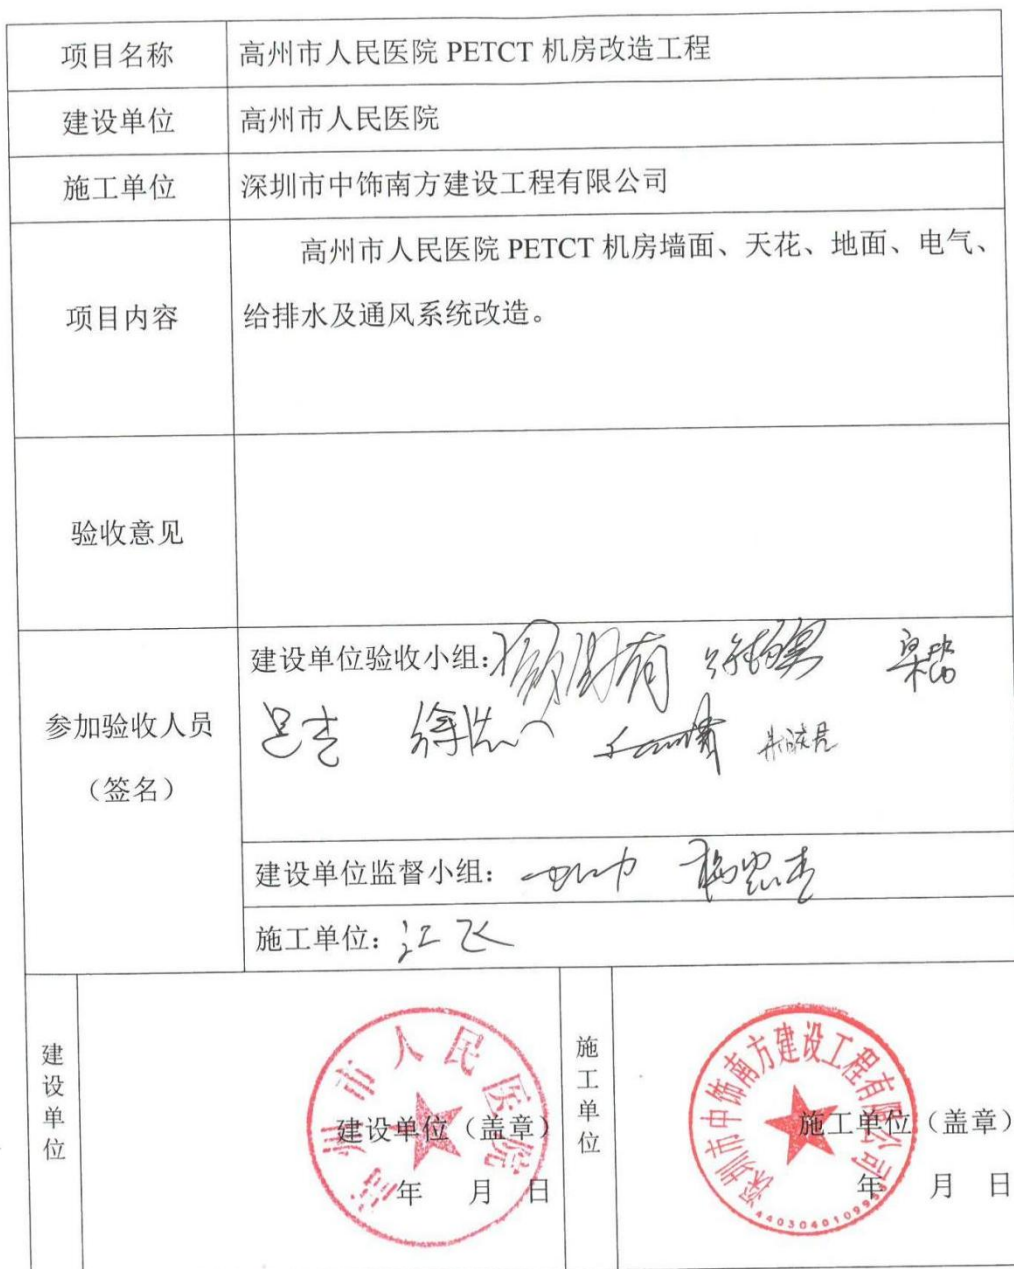 项目名称
高州市人民医院 PETCT 机房改造工程
建设单位
高州市人民医院
施工单位
深圳市中饰南方建设工程有限公司
项目内容
高州市人民医院 PETCT 机房墙面、天花、地面、电气、
给排水及通风系统改造。
验收意见
参加验收人员
（签名）
建设单位验收小组:
吕杰
建设单位监督小组:
施工单位: 江飞
建设单位
高州市人民医院
建设单位（盖章）
年 月 日
施工单位
深圳市中饰南方建设工程有限公司
施工单位（盖章）
年 月 日